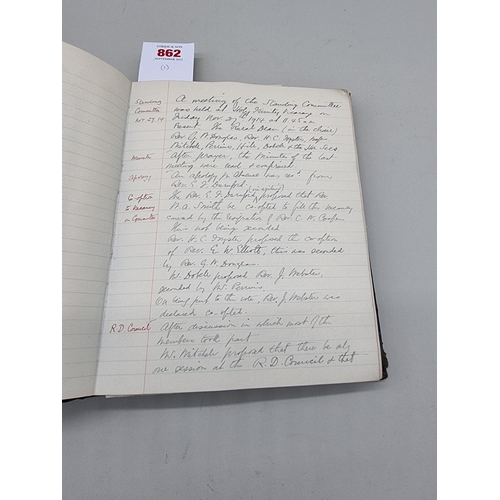 862
(1)
Standing
Committee
Nov. 27. 14
A meeting of the Standing Committee
was held at Holy Trinity Vicarage on
Friday Nov. 27th 1914 at 11.45 a.m.
Present. The Rural Dean (in the chair)
Rev. G. W. Douglas, Rev. H. C.
Mitchell, Perrins, Hill, Dobell & the Sec.
Minutes
After prayer, the Minutes of the last
meeting were read & confirmed
Apology
An apology for absence was rec'd from
Rev. E. F.
Co-option
to vacancy
on Committee
The Rev. E. F. proposed that Rev
M. A. Smith be co-opted to fill the vacancy
caused by the resignation of Rev. C. H.
this not being seconded
Rev. H. C. proposed the co-option
of Rev. E. M. Elliott, this was seconded
by Rev. G. W. Douglas.
Mr. Dobell proposed Rev. J. Webster,
seconded by Mr. Perrins
On being put to the vote, Rev. J. Webster was
declared co-opted.
R. D. Council
After discussion in which most of the
members took part
Mr. Mitchell proposed that there be
one session of the R. D. Council & that